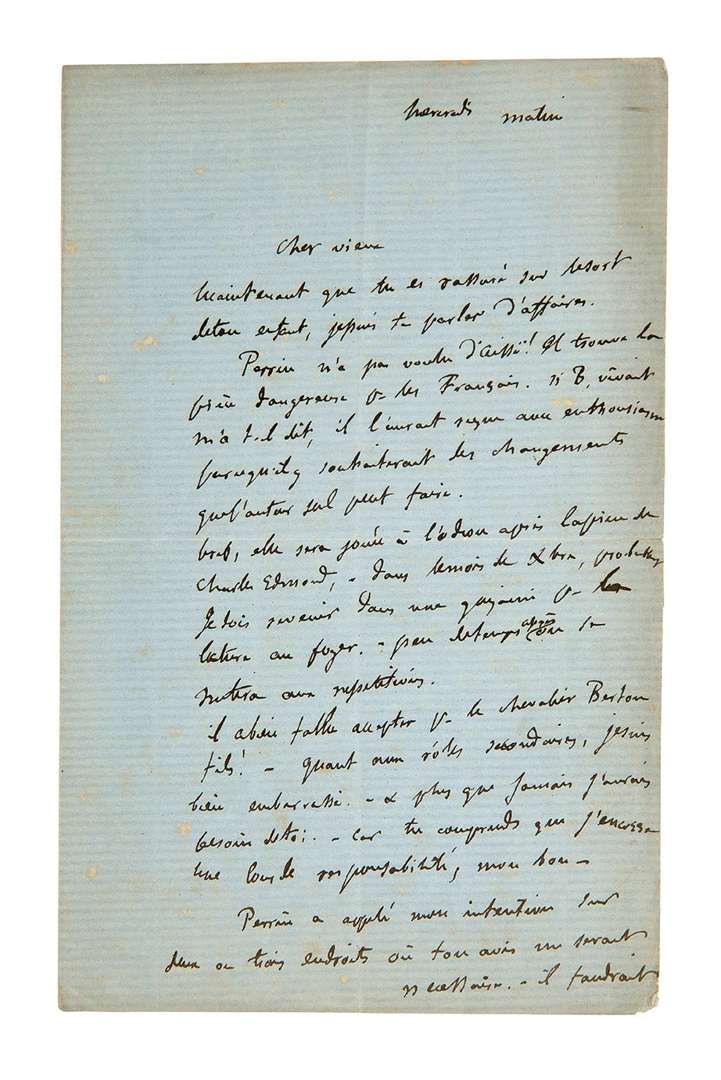 mercredi matin
Cher vieux
Maintenant que tu es rassuré sur le sort
de ton enfant, je puis te parler d'affaires.
Perrin n'a pas voulu d'aïssé! Il trouve la
pièce dangereuse pr les Français. si B, vivait
m'a t-il dit, il l'aurait reçue avec enthousiasme
parcequ'il y souhaiterait des changements
que l'auteur seul peut faire.
bref, elle sera jouée à l'odéon après la pièce de
Charles Edmond, - dans le mois de Xbre, probablemt
Je dois revenir dans une quinzaine pr la
lecture au foyer. - peu de temps après on se
mettra aux répétitions.
il a bien fallu accepter pr le chevalier Berton
fils! - quant aux rôles secondaires, je suis
bien embarrassé. - & plus que jamais j'aurais
besoin de toi. - Car tu comprends que j'encours
une lourde responsabilité, mon bon -
Perrin a appelé mon attention sur
deux ou trois endroits où ton avis me serait
nécessaire. - il faudrait